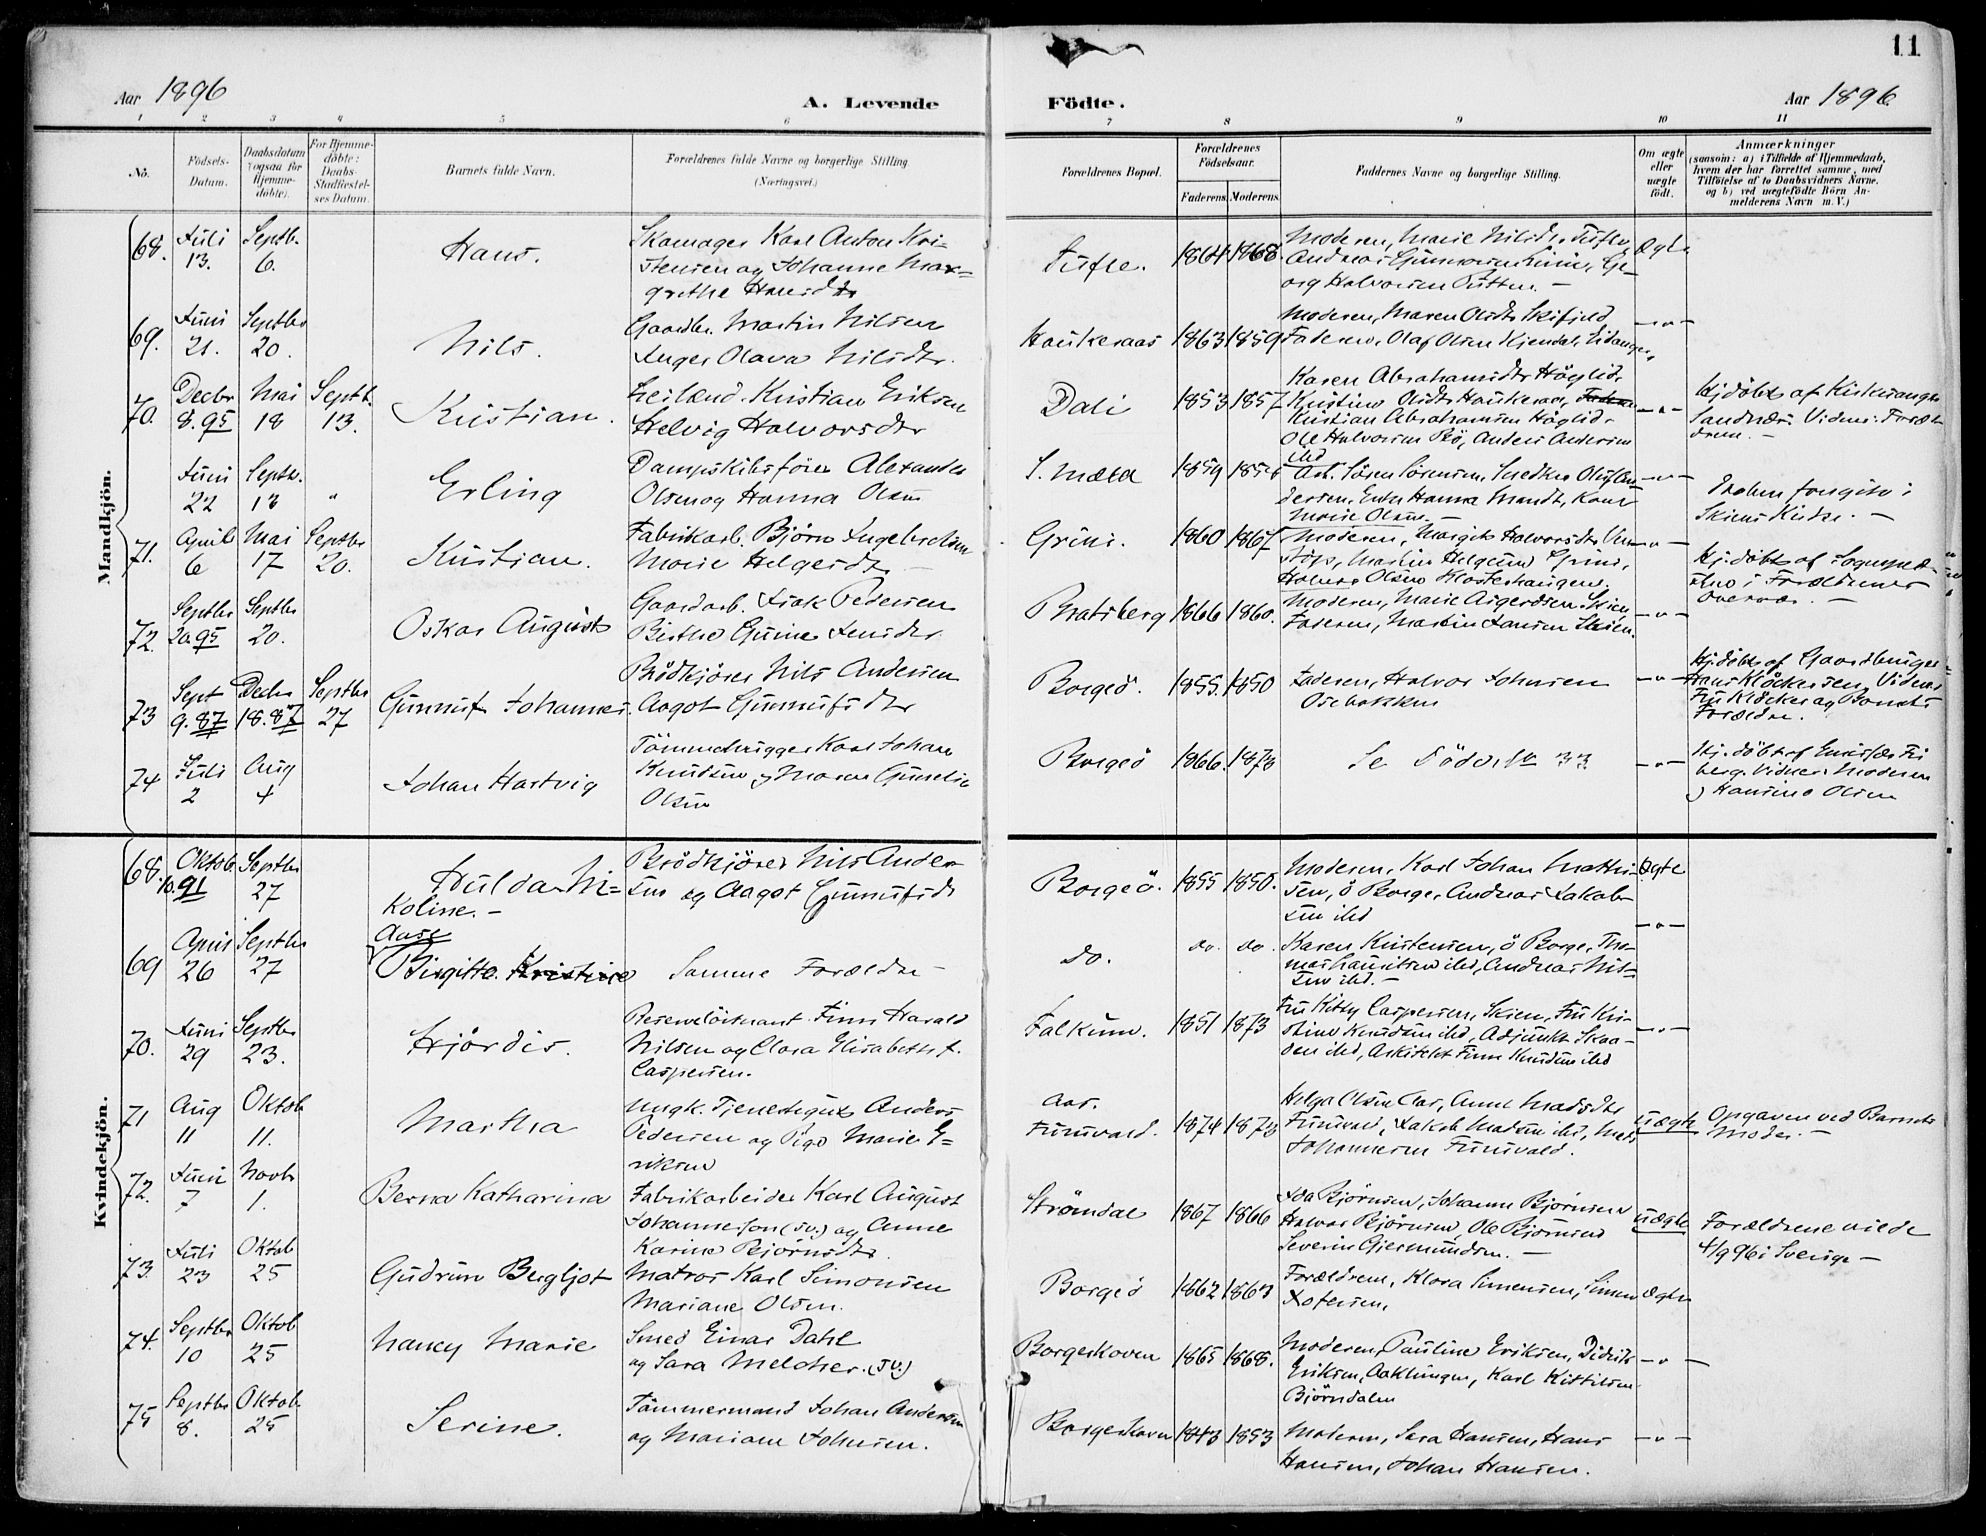 11
Aar 1896
A. Levende Födte.
Aar 1896
1 2 3 4 5 6 7 8 9 10 11
No.
Födsels-Datum.
Daabsdatum (ogsaa for Hjemme-döbte).
For Hjemme-döbte: Daabs-Stadfæstel-ses Datum.
Barnets fulde Navn.
Forældrenes fulde Navne og borgerlige Stilling
(Næringsvei.)
Forældrenes Bopæl.
Forældrenes Födselsaar.
Faderens. Moderens.
Faddernes Navne og borgerlige Stilling.
Om ægte eller uægte födt.
Anmærkninger
(saasom: a) i Tilfælde af Hjemmedaab,
hvem der har forrettet samme, med
Tilföielse af to Daabsvidners Navne,
og b) ved uægtefödte Börn An-
melderens Navn m. V.)
Mandkjön.
68. Juli 13. Septb. 6. Hans.
Skomager Karl Anton Kri-
stensen og Johanne Mar-
grethe Hansdtr
Tufte. 1864 1868.
Moderen, Marie Nilsdtr. Tufte,
69. Juni 21. Septbr 20. Nils.
Gaardbr. Martin Nilsen
Inger Olava Nilsdtr.
Haukeraas 1863 1859
Moderen, Maren Olsdtr
Faderen, Olaf Olsen
70. Decbr 8.95 Mai 18 Septb. 13. Kristian.
Leilænd. Kristian Eriksen
Helvig Halvorsdtr
Dali 1853 1857
Karen Abrahamsdtr Höglid,
Kristine Olsdtr Haukeraas,
Kristian Abrahamsen Höglid,
Ole Halvorsen Bö, Anders Andersen
ibd
Hj.döbt af
Vidner: Foræl-
drene. -
Juni 22 Septbr. 13 " Erling
Dampskibsförer Alexander
Olsen og Hanna Olsen
S. Mæla 1859
Moderen, Hanna Mandt,
Marie Olsen. -
Daaben foregik i
Skiens Kirke. -
71. April 6 Mai 17 Septbr 20. Kristian.
Fabrikarb. Björn Ingebretsen
Marie Helgesdtr -
Grini. 1860 1867
Moderen, Margit Halvorsdtr
Martin Helgesen Grini,
Halvor Olsen Klosterhaugen.
Hj.döbt af
i Forældrenes
Overvær. -
72. Septbr 20.95 Septbr 20. Oskar August
Gaardarb. Isak Pedersen
Birthe Gurine Jensdtr.
Bratsberg 1866 1860.
Moderen, Marie Asgerdsen Skien,
Faderen, Martin Jansen Skien.
73 Sept 9.87 Decbr 18.87 Septbr 27 Gunnuf Johannes.
Brödkjörer Nils Andersen
Aagot Gunnufsdtr
Borgeö. 1855. 1850
Faderen, Halvor Johnsen
Osebakken
Hj.döbt af Gaardbruger
Hans Klöckersen, Vidner
Fru Klöcker og Barnets
Forældre.
74 Juli 2 Aug 4 Johan Hartvig
Tömmerhugger Karl Johan
Knudsen og Maren Gunelie
Olsen
Borgeö 1866. 1873
Se Döde No 33
Hj.döbt af
Vidner: Moderen
og Hansine Olsen
Kvindekjön.
68. Oktob. 10.91 Septbr 27 Hulda Ni-
koline. -
Brödkjörer Nils Ander-
sen og Aagot Gunnufsdtr
Borgeö. 1855 1850.
Moderen, Karl Johan Mathi-
sen, ö Borge, Andreas Jakob-
sen ibd
Ægte
69 April 26 Septbr 27 Aase
Birgitte Kristine
Samme Forældre -
Do. do. do.
Karen Kristensen, ö Borge, Tho-
mas Lauritsen ibd, Andreas Nil-
sen ibd. -
70. Juni 29 Septbr 23. Hjördis.
Finn Harald
Nilsen og Clara Elisabeth f.
Caspersen.
Falkum. 1851 1873
Fru Kitty Caspersen, Skien, Fru Kri-
stine Knudsen ibd, Adjunkt Skaa-
den ibd, Arkitekt Finn Knudsen ibd
71 Aug 11 Oktob 11. Martha
Ungk. Tjenestegut Anders
Pedersen og Pige Marie E-
riksen
Aas.
Furuvald. 1874 1873
Helga Olsen Aas, Anne Madsdtr
Furuvald, Jakob Madsen ibd, Mads
Johannesen Furuvald.
Uægte
Opgaven ved Barnets
Moder. -
72. Juni 7 Novbr 1. Berna Katharina
Fabrikarbeider Karl August
Johannesson (sv.) og Anne
Karine Björnsdtr.
Strömdal 1867 1866
Ida Björnsen, Johanne Björnsen
Halvor Björnsen, Ole Björnsen
Severin Gjermundsen. -
Uægte
Forældrene viede
4/9 96 i Sverige -
73. Juli 23 Oktob 25 Gudrun Bergljot
Matros Karl Simonsen
Mariane Olsen.
Borgeö 1862 1863
Forældrene, Klara Simensen, Simen
Ægte
74. Septbr 10 Oktob 25 Nancy Marie
Smed Einar Dahl
og Sara Melcher. (sv.)
Borgeskoven 1865 1868.
Moderen, Pauline Eriksen, Didrik
Eriksen, Aaklungen, Karl Kittilsen
Björndalen
75 Septbr 8. Oktob 25 Serine.
Tömmermand Johan Andersen
og Mariane Johnsen.
Borgeskoven 1843 1853
Moderen, Sara Hansen, Hans
Hansen, Johan Hansen.